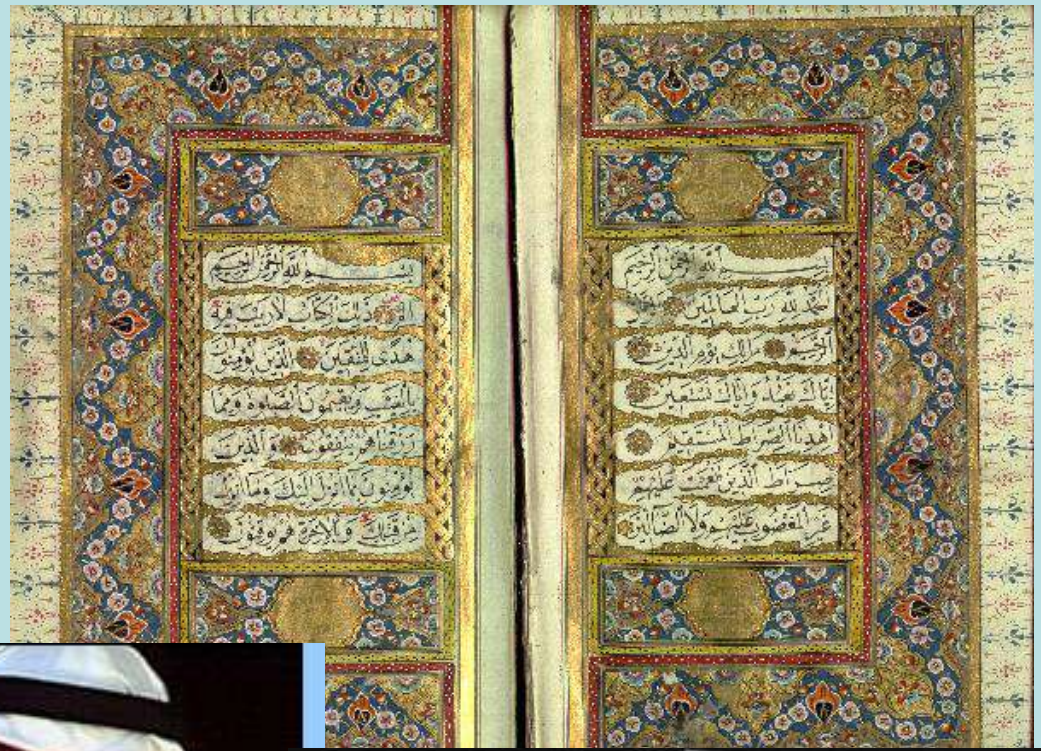 بسم الله الرحمن الرحيم
الحمد لله رب العالمين
الرحيم مالك يوم الدين
اياك نعبد واياك نستعين
اهدنا الصراط المستقيم
صراط الذين انعمت عليهم
غير المغضوب عليهم ولا الضالين
بسم الله الرحمن الرحيم
الم ذلك الكتاب لا ريب فيه
هدى للمتقين الذين يؤمنون
بالغيب ويقيمون الصلوة ومما
رزقناهم ينفقون والذين
يؤمنون بما انزل اليك وما انزل
من قبلك وبالاخرة هم يوقنون